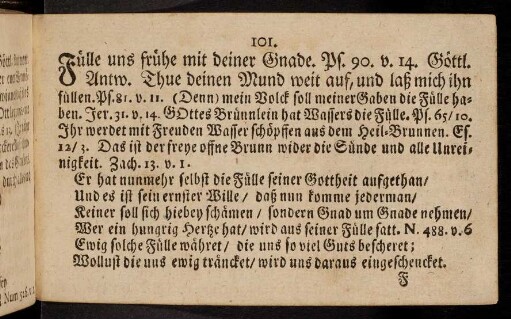 101.
Fülle uns frühe mit deiner Gnade. Ps. 90. v. 14. Göttl.
Antw. Thue deinen Mund weit auf, und laß mich ihn
füllen. Ps. 81. v. 11. (Denn) mein Volck soll meiner Gaben die Fülle ha-
ben. Jer. 31. v. 14. GOttes Brünnlein hat Wassers die Fülle. Ps. 65/10.
Ihr werdet mit Freuden Wasser schöpffen aus dem Heil-Brunnen. Es.
12/3. Das ist der freye offne Brunn wider die Sünde und alle Unrei-
nigkeit. Zach. 13. v. 1.
Er hat nunmehr selbst die Fülle seiner Gottheit aufgethan/
Und es ist sein ernster Wille/ daß nun komme jederman/
Keiner soll sich hiebey schämen/ sondern Gnad um Gnade nehmen/
Wer ein hungrig Hertze hat/ wird aus seiner Fülle satt. N. 488. v. 6
Ewig solche Fülle währet/ die uns so viel Guts bescheret;
Wollust die uns ewig träncket/ wird uns daraus eingeschencket.
F